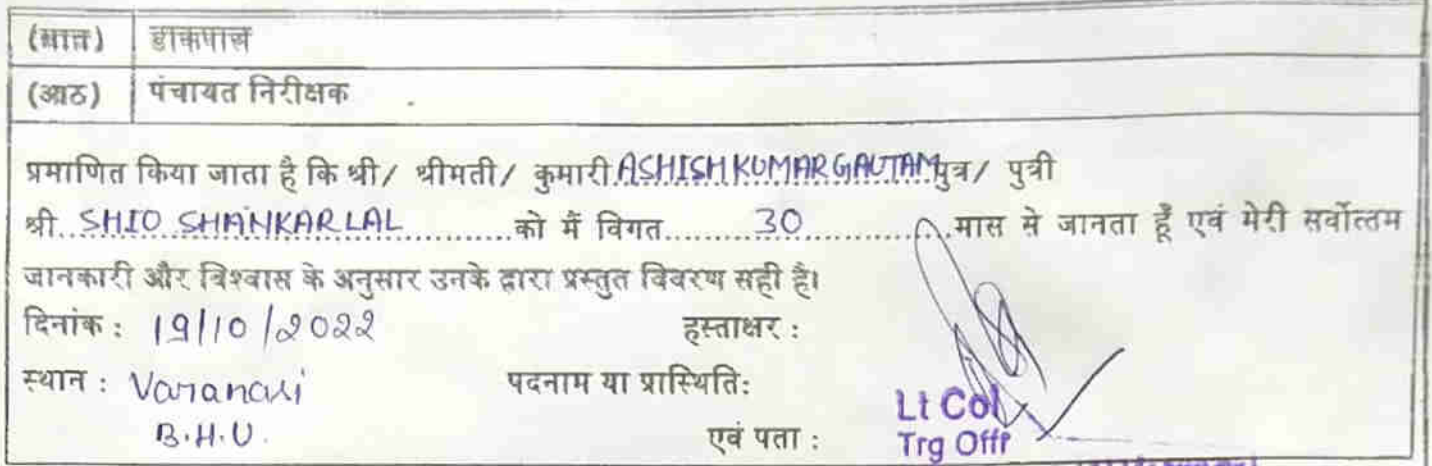 (सात) डाकपाल
(आठ) पंचायत निरीक्षक
प्रमाणित किया जाता है कि श्री/ श्रीमती/ कुमारी ASHISH KUMAR GAUTAM पुत्र/ पुत्री
श्री.. SHIO SHANKAR LAL ............को मैं विगत........ 30 ..............मास से जानता हूँ एवं मेरी सर्वोत्तम
जानकारी और विश्वास के अनुसार उनके द्वारा प्रस्तुत विवरण सही है।
दिनांक : 19/10/2022 हस्ताक्षर :
स्थान : Varanasi पदनाम या प्रास्थिति:
B.H.U. एवं पता :
Lt Col
Trg Offr